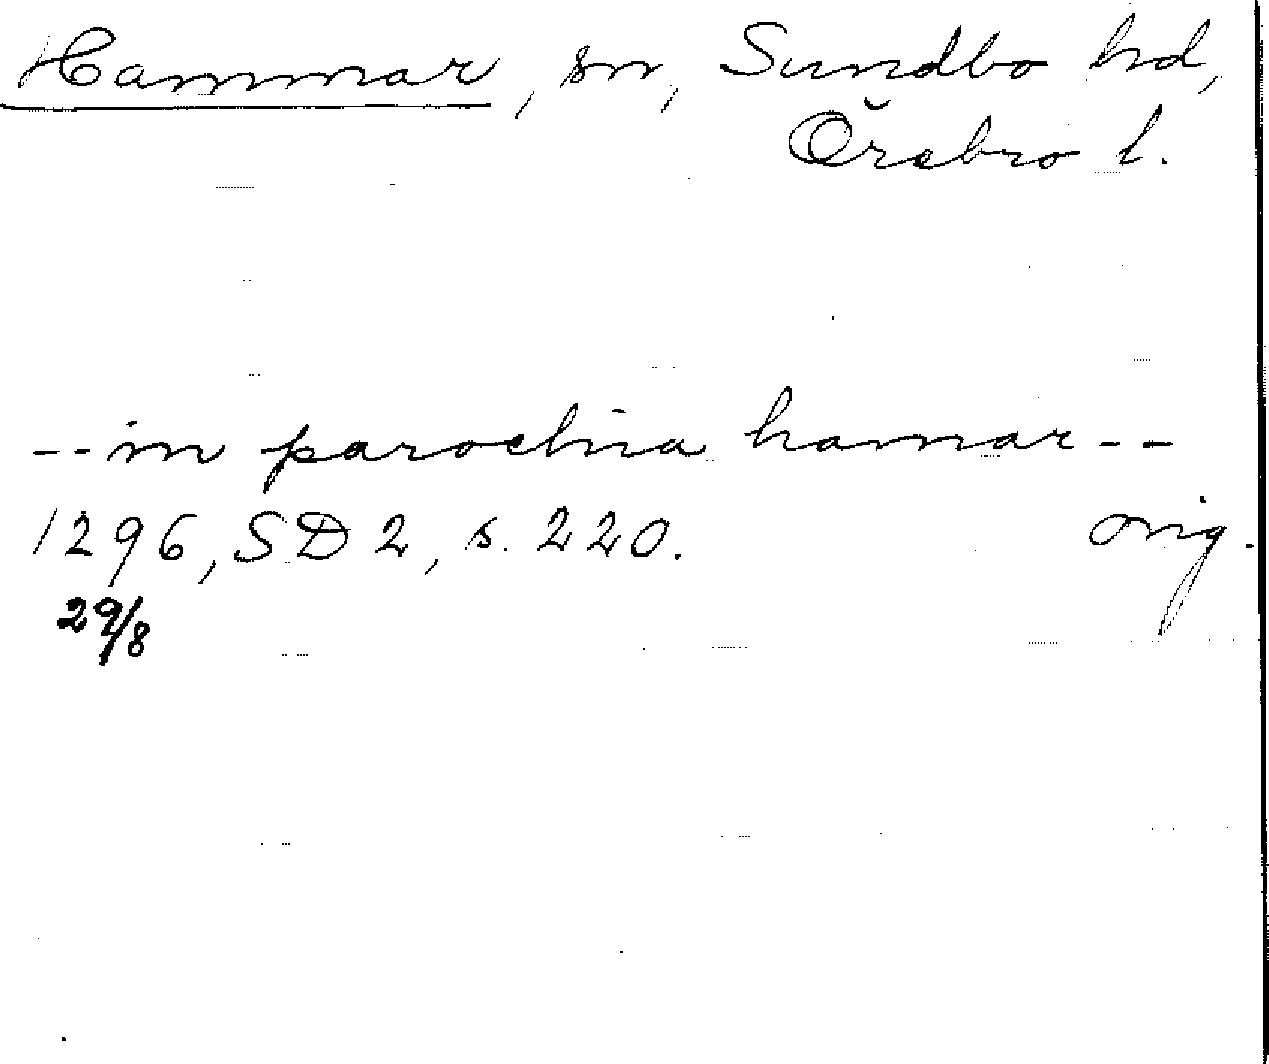 Hammar, sn, Sundbo hd,
Örebro l.
--in parochia hamar--
1296, SD 2, s. 220. orig.
29/8